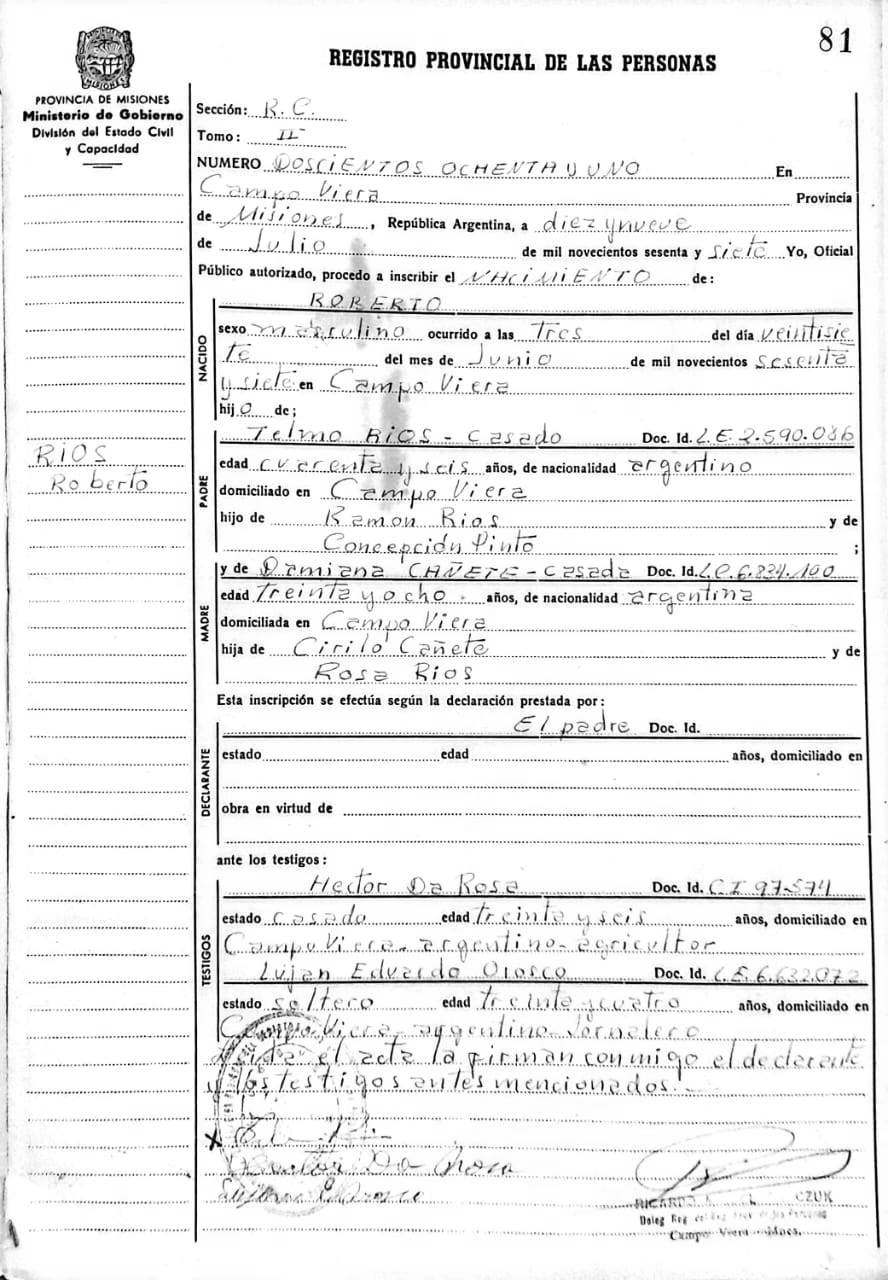 81
REGISTRO PROVINCIAL DE LAS PERSONAS
PROVINCIA DE MISIONES
Ministerio de Gobierno
División del Estado Civil
y Capacidad
RIOS
Roberto
Sección: R.C.
Tomo: II
NUMERO DOSCIENTOS OCHENTA y UNO En
Campo Viera Provincia
de Misiones, República Argentina, a diez y nueve
de Julio de mil novecientos sesenta y siete Yo, Oficial
Público autorizado, procedo a inscribir el NACIMIENTO de:
ROBERTO
NACIDO
sexo masculino ocurrido a las Tres del día veintisie
te del mes de Junio de mil novecientos sesenta
y siete en Campo Viera
hijo de;
PADRE
Telmo RIOS - casado Doc. Id. L.E. 2.590.086
edad cuarenta y seis años, de nacionalidad argentino
domiciliado en Campo Viera
hijo de Ramon Rios y de
Concepción Pinto ;
MADRE
y de Damiana CAÑETE - casada Doc. Id. L.C. 6.834.100
edad treinta y ocho. años, de nacionalidad argentina
domiciliada en Campo Viera
hija de Cirilo Cañete y de
Rosa Rios
Esta inscripción se efectúa según la declaración prestada por:
DECLARANTE
El padre Doc. Id.
estado edad años, domiciliado en
obra en virtud de
ante los testigos:
TESTIGOS
Hector Da Rosa Doc. Id. C.I 97.574
estado casado edad treinta y seis años, domiciliado en
Campo Viera - argentino - agricultor
Lujan Eduardo Orosco Doc. Id. L.E. 6.632.072
estado soltero edad treinta y cuatro años, domiciliado en
Campo Viera - argentino - Jornalero
el acta la firman conmigo el declarante
y los testigos antes mencionados.-
X
Hector Da Rosa
Orosco
RICARDO CZUK
Deleg Reg
Campo Viera - Mnes.